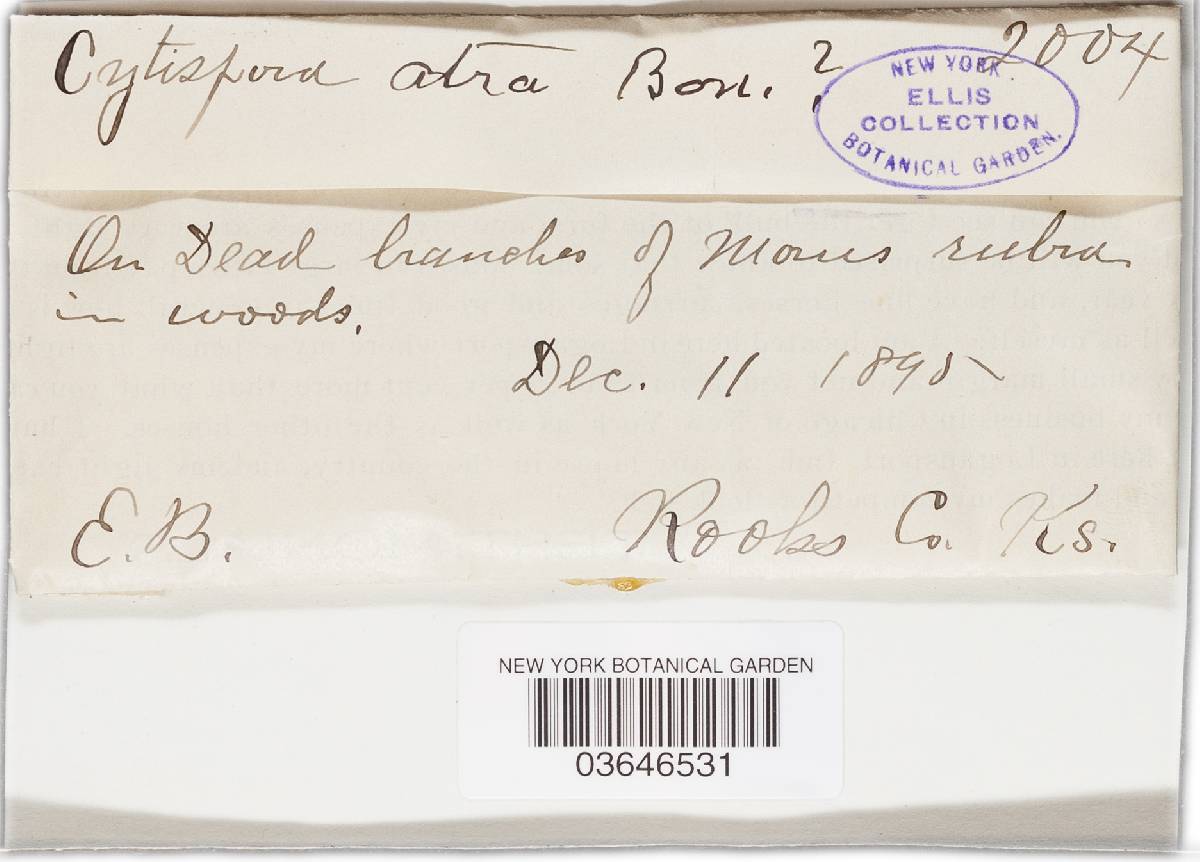 Cytispora atra Bon. ? 2004
NEW YORK
ELLIS
COLLECTION
BOTANICAL GARDEN.
On Dead branches of Morus rubra
in woods.
Dec. 11 1895
E. B. Rooks Co. Ks.
NEW YORK BOTANICAL GARDEN
03646531